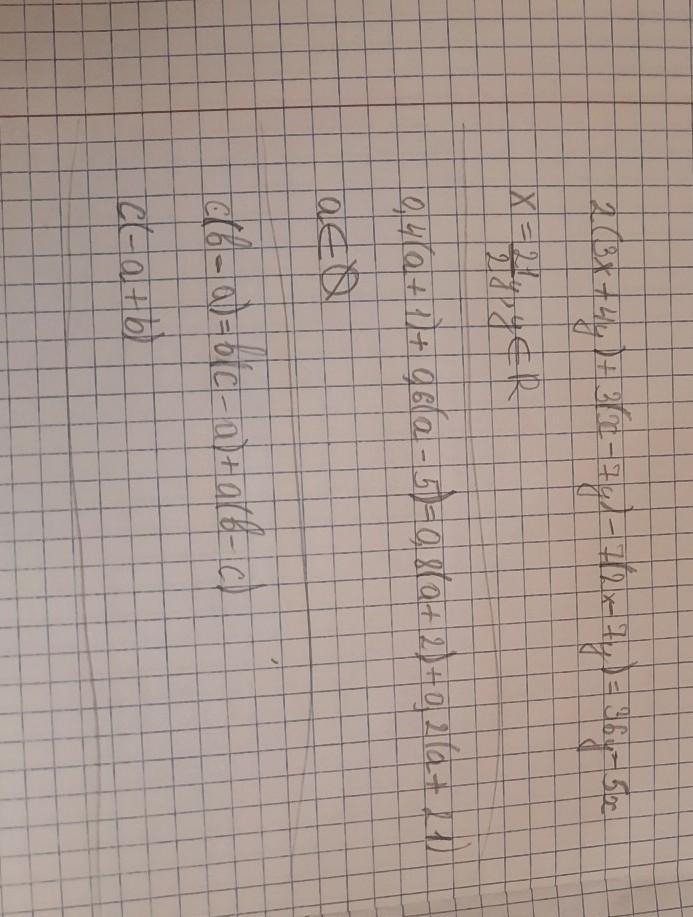 2(3x+4y)+3(x-7y)-7(2x-7y)=36y-5x
x=21y/2y, y∈R
0,4(a+1)+0,6(a-5)=0,8(a+2)+0,2(a+21)
a∈∅
c(b-a)=b(c-a)+a(b-c)
c(-a+b)